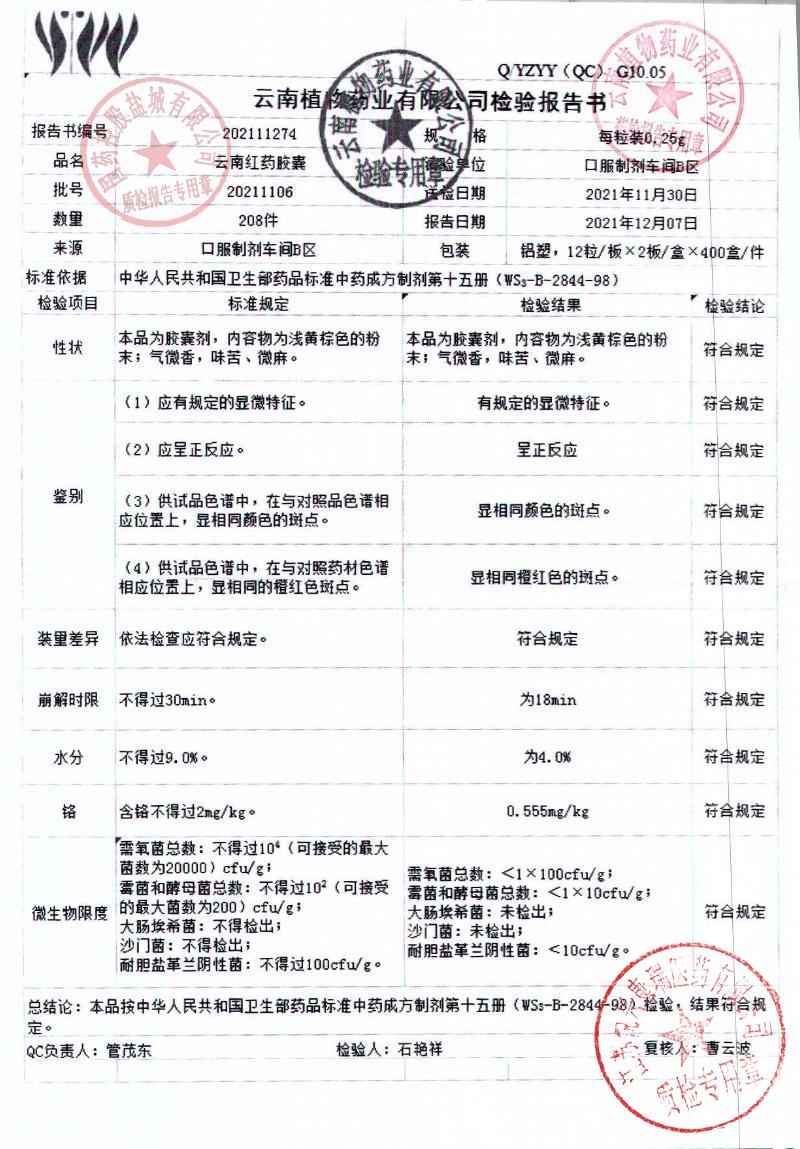 Q/YZYY（QC）G10.05
云南植物药业有限公司检验报告书
报告书编号 202111274 规 格 每粒装0.25g
品名 云南红药胶囊 请验单位 口服制剂车间B区
批号 20211106 送检日期 2021年11月30日
数量 208件 报告日期 2021年12月07日
来源 口服制剂车间B区 包装 铝塑，12粒/板×2板/盒×400盒/件
标准依据 中华人民共和国卫生部药品标准中药成方制剂第十五册（WS₃-B-2844-98）
检验项目 标准规定 检验结果 检验结论
性状
本品为胶囊剂，内容物为浅黄棕色的粉
末；气微香，味苦、微麻。
本品为胶囊剂，内容物为浅黄棕色的粉
末；气微香，味苦、微麻。
符合规定
鉴别
（1）应有规定的显微特征。 有规定的显微特征。 符合规定
（2）应呈正反应。 呈正反应 符合规定
（3）供试品色谱中，在与对照品色谱相
应位置上，显相同颜色的斑点。
显相同颜色的斑点。 符合规定
（4）供试品色谱中，在与对照药材色谱
相应位置上，显相同的橙红色斑点。
显相同橙红色的斑点。 符合规定
装量差异 依法检查应符合规定。 符合规定 符合规定
崩解时限 不得过30min。 为18min 符合规定
水分 不得过9.0%。 为4.0% 符合规定
铬 含铬不得过2mg/kg。 0.555mg/kg 符合规定
微生物限度
需氧菌总数：不得过10⁴（可接受的最大
菌数为20000）cfu/g；
霉菌和酵母菌总数：不得过10²（可接受
的最大菌数为200）cfu/g；
大肠埃希菌：不得检出；
沙门菌：不得检出；
耐胆盐革兰阴性菌：不得过100cfu/g。
需氧菌总数：<1×100cfu/g；
霉菌和酵母菌总数：<1×10cfu/g；
大肠埃希菌：未检出；
沙门菌：未检出；
耐胆盐革兰阴性菌：<10cfu/g。
符合规定
总结论：本品按中华人民共和国卫生部药品标准中药成方制剂第十五册（WS₃-B-2844-98）检验，结果符合规
定。
QC负责人：管茂东 检验人：石艳祥 复核人：曹云波
国药控股盐城有限公司
质检报告专用章
云南植物药业有限公司
检验专用章
云南植物药业有限公司
质检专用章